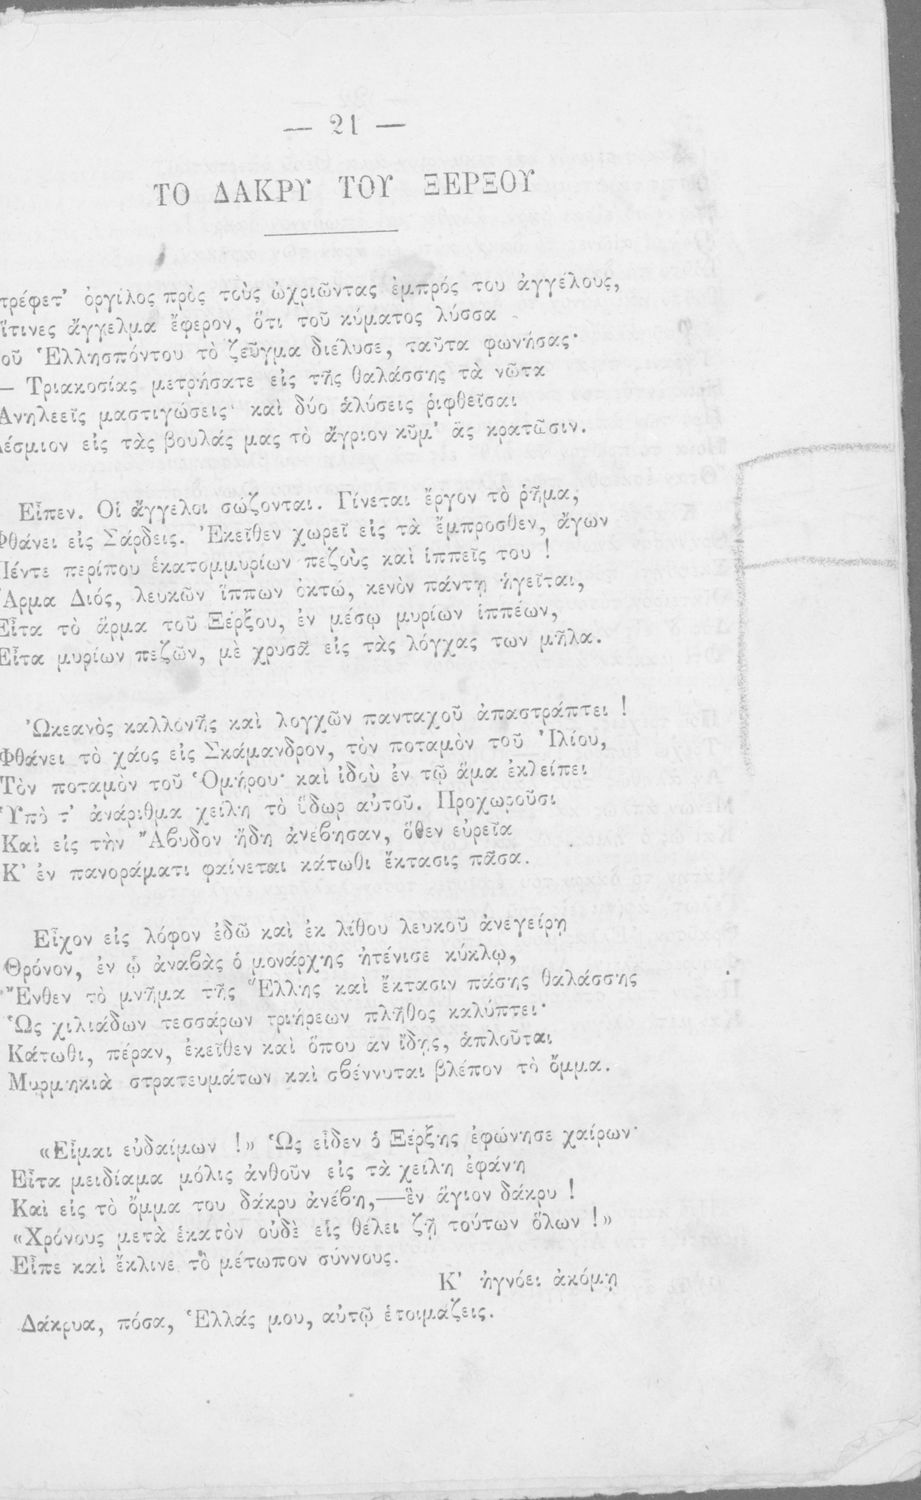 — 21 —
ΤΟ ΔΑΚΡΥ ΤΟΥ ΞΕΡΞΟΥ
τρέφετ' ὀργίλος πρὸς τοὺς ὠχριῶντας ἐμπρός του ἀγγέλους,
ἵτινες ἄγγελμα ἔφερον, ὅτι τοῦ κύματος λύσσα
οῦ Ἑλλησπόντου τὸ ζεῦγμα διέλυσε, ταῦτα φωνήσας·
— Τριακοσίας μετρήσατε εἰς τῆς θαλάσσης τὰ νῶτα
Ἀνηλεεῖς μαστιγώσεις· καὶ δύο ἁλύσεις ῥιφθεῖσαι
Δέσμιον εἰς τὰς βουλάς μας τὸ ἄγριον κῦμ' ἂς κρατῶσιν.
Εἶπεν. Οἱ ἄγγελοι σώζονται. Γίνεται ἔργον τὸ ῥῆμα,
Φθάνει εἰς Σάρδεις. Ἐκεῖθεν χωρεῖ εἰς τὰ ἔμπροσθεν, ἄγων
Πέντε περίπου ἑκατομμυρίων πεζοὺς καὶ ἱππεῖς του !
Ἅρμα Διός, λευκῶν ἵππων ὀκτώ, κενὸν πάντῃ ἡγεῖται,
Εἶτα τὸ ἅρμα τοῦ Ξέρξου, ἐν μέσῳ μυρίων ἱππέων,
Εἶτα μυρίων πεζῶν, μὲ χρυσᾶ εἰς τὰς λόγχας των μῆλα.
Ὠκεανὸς καλλονῆς καὶ λογχῶν πανταχοῦ ἀπαστράπτει !
Φθάνει τὸ χάος εἰς Σκάμανδρον, τὸν ποταμὸν τοῦ Ἰλίου,
Τὸν ποταμὸν τοῦ Ὁμήρου· καὶ ἰδοὺ ἐν τῷ ἅμα ἐκλείπει
Ὑπὸ τ' ἀνάριθμα χείλη τὸ ὕδωρ αὐτοῦ. Προχωροῦσι
Καὶ εἰς τὴν Ἄβυδον ἤδη ἀνέβησαν, ὅθεν εὐρεῖα
Κ' ἐν πανοράματι φαίνεται κάτωθι ἔκτασις πᾶσα.
Εἶχον εἰς λόφον ἐδῶ καὶ ἐκ λίθου λευκοῦ ἀνεγείρῃ
Θρόνον, ἐν ᾧ ἀναβὰς ὁ μονάρχης ἠτένισε κύκλῳ,
Ἔνθεν τὸ μνῆμα τῆς Ἕλλης καὶ ἔκτασιν πάσης θαλάσσης
Ὡς χιλιάδων τεσσάρων τριήρεων πλῆθος καλύπτει·
Κάτωθι, πέραν, ἐκεῖθεν καὶ ὅπου ἂν ἴδῃς, ἁπλοῦται
Μυρμηκιὰ στρατευμάτων καὶ σβέννυται βλέπον τὸ ὄμμα.
«Εἶμαι εὐδαίμων !» Ὡς εἶδεν ὁ Ξέρξης ἐφώνησε χαίρων·
Εἶτα μειδίαμα μόλις ἀνθοῦν εἰς τὰ χείλη ἐφάνη
Καὶ εἰς τὸ ὄμμα του δάκρυ ἀνέβη,—ἓν ἅγιον δάκρυ !
«Χρόνους μετὰ ἑκατὸν οὐδὲ εἷς θέλει ζῇ τούτων ὅλων !»
Εἶπε καὶ ἔκλινε τὸ μέτωπον σύννους.
Κ' ἠγνόει ἀκόμη
Δάκρυα, πόσα, Ἑλλάς μου, αὐτῷ ἑτοιμάζεις.